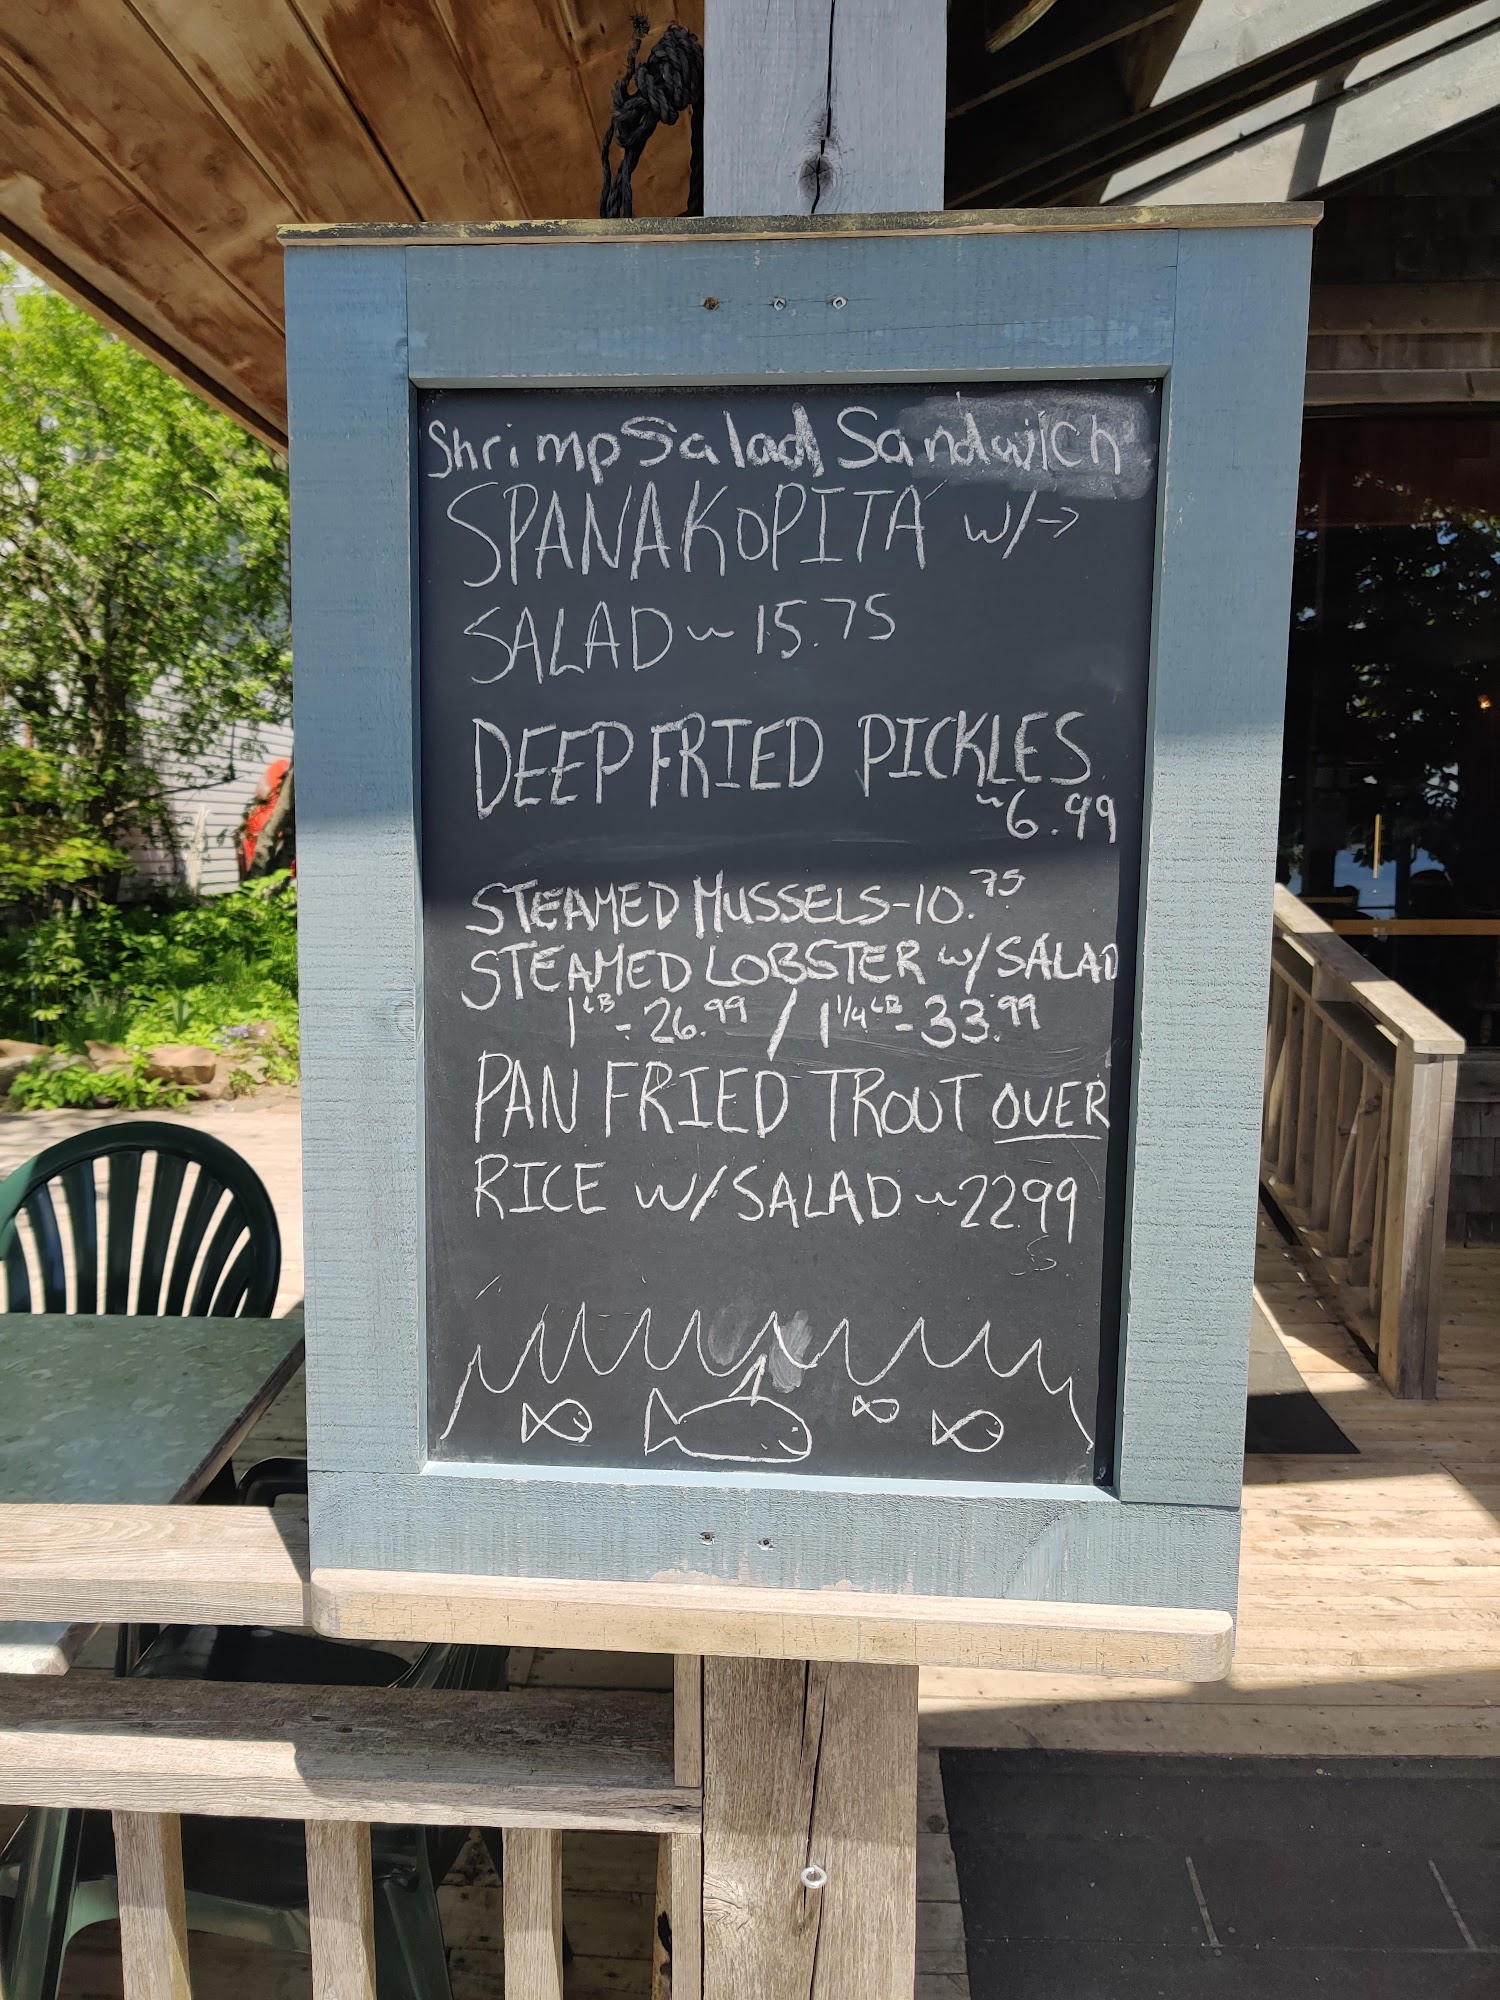 Shrimp Salad Sandwich
SPANAKOPITA w/→
SALAD ~ 15.75
DEEP FRIED PICKLES
~6.99
STEAMED MUSSELS-10.75
STEAMED LOBSTER w/ SALAD
1LB - 26.99 / 1 1/4 LB - 33.99
PAN FRIED TROUT OVER
RICE W/ SALAD ~ 22.99